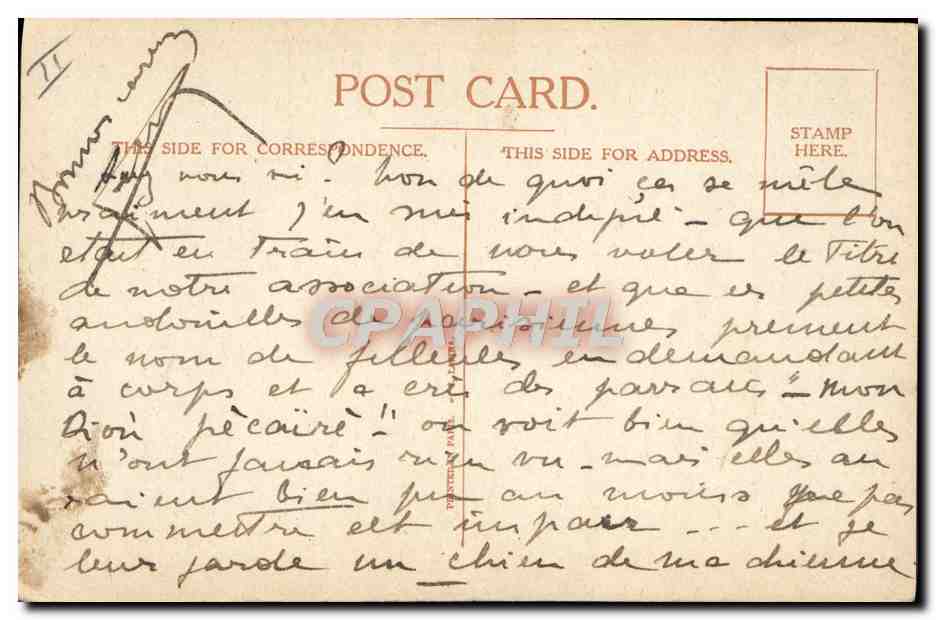 II
POST CARD.
THIS SIDE FOR CORRESPONDENCE.
THIS SIDE FOR ADDRESS.
STAMP
HERE.
nous ni. hon de quoi ças se mêle
vraiment j'en suis - que l'on
était en train de nous voler le Titre
de notre association - et que ces petites
andouilles de parisiennes prennent
le nom de filleules en demandant
à corps et a cris des parrains" - mon
Dioù pècaïrè!! on voit bien qu'elles
n'ont jamais rien vu - mais elles au
raient bien pu au moins ne pas
commettre cet impair ... et je
leur garde un chien de ma chienne
CPAPHIL